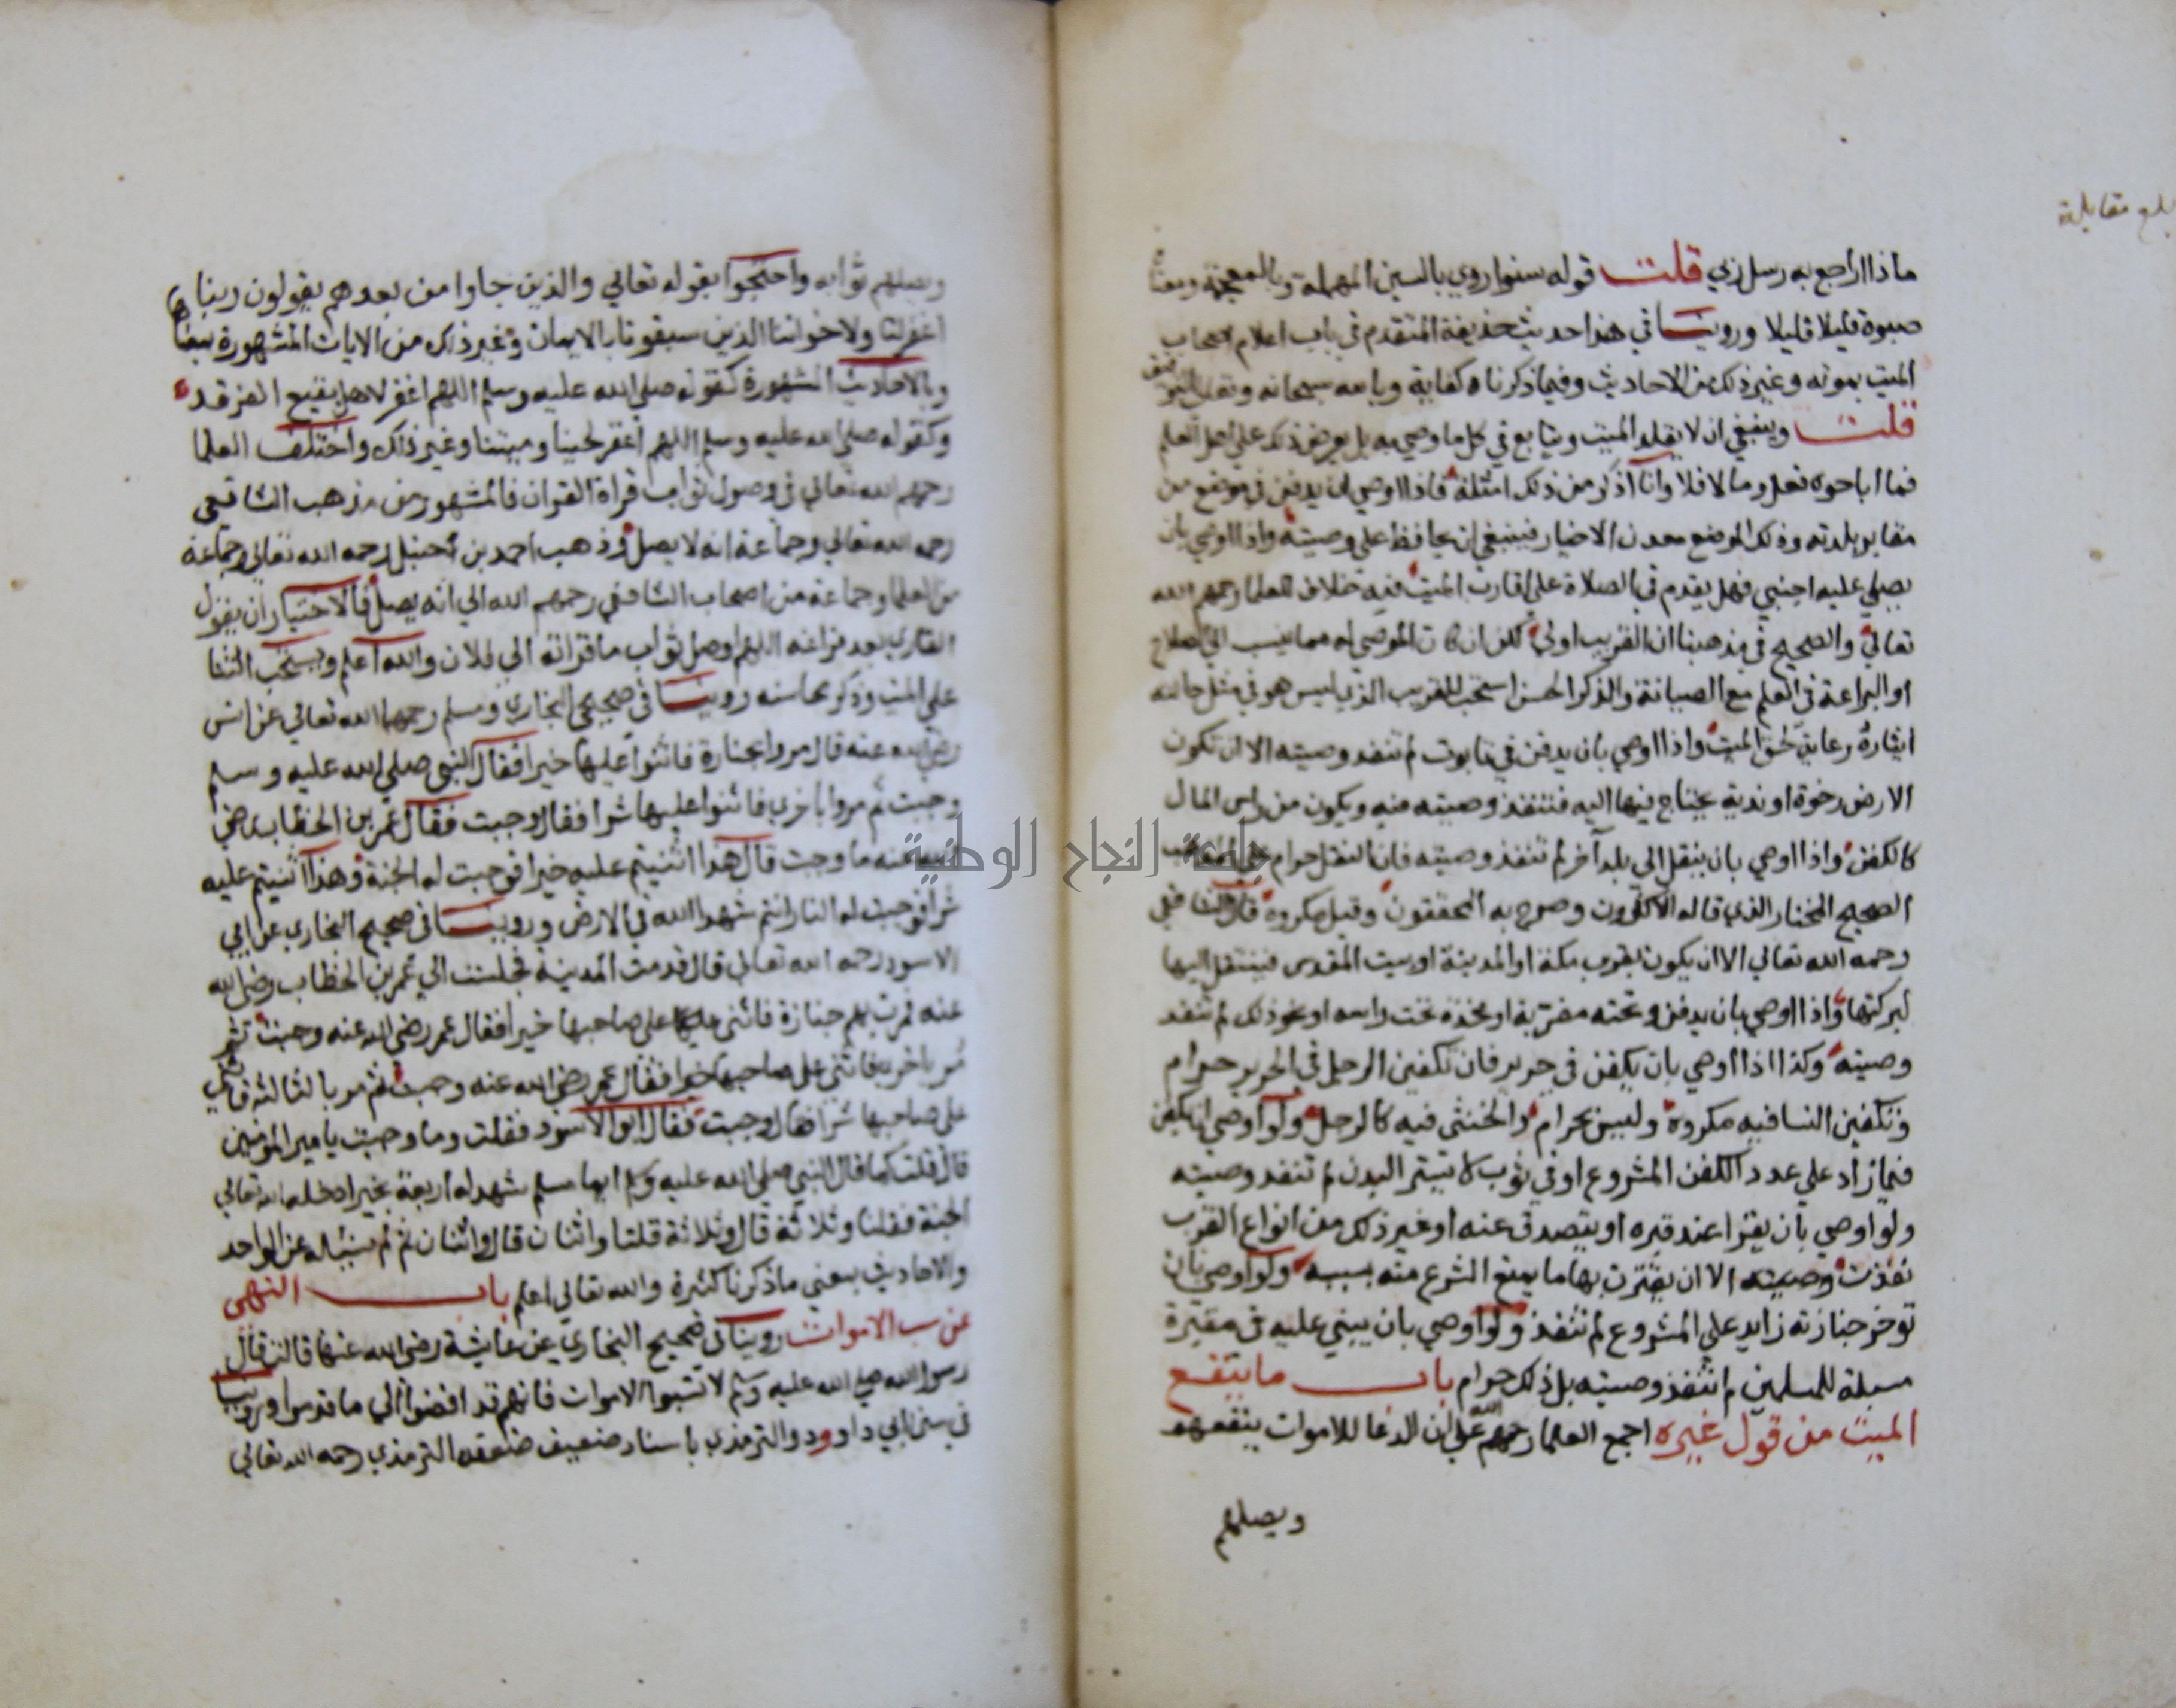 بلغ مقابلة
ماذا اراجع به رسل ربي قلت قوله سنوا روي بالسين المهملة وبالمعجمة ومعناه
صبوه قليلا قليلا وروينا في هذا حديث حذيفة المتقدم في باب اعلام اصحاب
الميت بموته وغير ذلك من الاحاديث وفيما ذكرناه كفاية وبالله سبحانه وتعالى التوفيق
قلت وينبغي ان لا يقلد الميت ويتابع في كل ما وصي به بل يعرض ذلك على اهل العلم
فما اباحوه فعل وما لا فلا وانا اذكر من ذلك امثلة فاذا اوصي ان يدفن في موضع من
مقابر بلدته وذلك الموضع معدن الاخيار فينبغي ان يحافظ علي وصيته واذا اوصي بان
يصلي عليه اجنبي فهل يقدم في الصلاة على اقارب الميت فيه خلاف للعلما رحمهم الله
تعالي والصحيح في مذهبنا ان القريب اولي لكن ان كان الموصي له مما ينسب الي الصلاح
او البراعة في العلم مع الصيانة والذكر الحسن استحب للقريب الذي ليس هو في مثل حاله
ايثاره رعاية لحق الميت واذا اوصي بان يدفن في تابوت لم تنفد وصيته الا ان تكون
الارض رخوة او ندية يحتاج فيها اليه فتنفذ وصيته منه ويكون من راس المال
كالكفن واذا اوصي بان ينقل الي بلد آخر لم تنفد وصيته فان النقل حرام علي المذهب
الصحيح المختار الذي قاله الاكثرون وصرح به المحققون وقيل مكروه قال الشافعي
رحمه الله تعالي الا ان يكون بقرب مكة او المدينة او بيت المقدس فينتقل اليها
لبركتها واذا اوصي بان يدفن وتحته مضربة او مخدة تحت راسه او نحو ذلك لم تنفد
وصيته وكذا اذا اوصي بان يكفن في حرير فان تكفين الرجل في الحرير حرام
وتكفين النسا فيه مكروه وليس بحرام والخنثى فيه كالرجل ولو اوصي ان يكفن
فيما زاد علي عدد الكفن المشروع او في ثوب لا يستر البدن لم تنفد وصيته
ولو اوصي بان يقرا عند قبره او يتصدق عنه او غير ذلك من انواع القرب
نفذت وصيته الا ان يقترن بها ما يمنع الشرع منه بسببه ولو اوصي بان
توخر جنازته زايد علي المشروع لم تنفذ ولو اوصي بان يبني عليه في مقبرة
مسبلة للمسلمين لم تنفذ وصيته بل ذلك حرام باب ما ينتفع
الميت من قول غيره اجمع العلما رحمهم الله علي ان الدعا للاموات ينفعهم
ويصلهم
ويصلهم ثوابه واحتجوا بقوله تعالي والذين جاوا من بعدهم يقولون ربنا
اغفر لنا ولاخواننا الذين سبقونا بالايمان وغير ذلك من الايات المشهورة بمعناها
وبالاحاديث المشهورة كقوله صلي الله عليه وسلم اللهم اغفر لاهل بقيع الغرقد
وكقوله صلي الله عليه وسلم اللهم اغفر لحينا وميتنا وغير ذلك واختلف العلما
رحمهم الله تعالي في وصول ثواب قراة القران فالمشهور من مذهب الشافعي
رحمه الله تعالي وجماعة انه لا يصل وذهب احمد بن حنبل رحمه الله تعالي وجماعة
من العلما وجماعة من اصحاب الشافعي رحمهم الله الي انه يصل فالاختيار ان يقول
القاري بعد فراغه اللهم اوصل ثواب ما قراته الي فلان والله اعلم ويستحب الثنا
علي الميت وذكر محاسنه روينا في صحيحي البخاري ومسلم رحمهما الله تعالي عن انس
رضي الله عنه قال مروا بجنازة فاثنوا عليها خيرا فقال النبي صلي الله عليه وسلم
وجبت ثم مروا باخري فاثنوا عليها شرا فقال وجبت فقال عمر بن الخطاب رضي
الله عنه ما وجبت قال هذا اثنيتم عليه خيرا فوجبت له الجنة وهذا اثنيتم عليه
شرا فوجبت له النار انتم شهدا الله في الارض وروينا في صحيح البخاري عن ابي
الاسود رحمه الله تعالي قال قدمت المدينة فجلست الي عمر بن الخطاب رضي الله
عنه فمرت بهم جنازة فاثني عليها على صاحبها خيرا فقال عمر رضي الله عنه وجبت ثم
مر باخري فاثني على صاحبها خيرا فقال عمر رضي الله عنه وجبت ثم مر بالثالثة فاثني
على صاحبها شرا فقال وجبت فقال ابو الاسود فقلت وما وجبت يا مير المومنين
قال قلت كما قال النبي صلي الله عليه وسلم ايما مسلم شهد له اربعة بخير ادخله الله تعالي
الجنة فقلنا وثلاثة قال وثلاثة قلنا واثنان قال واثنان ثم لم نسئاله عن الواحد
والاحاديث بمعني ما ذكرنا كثيرة والله تعالي اعلم باب النهي
عن سب الاموات روينا في صحيح البخاري عن عايشة رضي الله عنها قالت قال
رسول الله صلي الله عليه وسلم لا تسبوا الاموات فانهم قد افضوا الي ما قدموا وروينا
في سنن ابي داوود والترمذي باسناد ضعيف ضعفه الترمذي رحمه الله تعالي
جامعة النجاح الوطنية